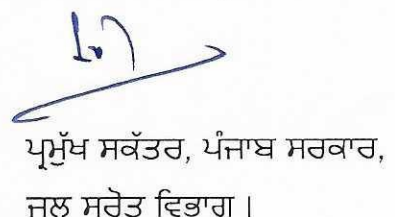 ਪ੍ਰਮੁੱਖ ਸਕੱਤਰ, ਪੰਜਾਬ ਸਰਕਾਰ,
ਜਲ ਸਰੋਤ ਵਿਭਾਗ।